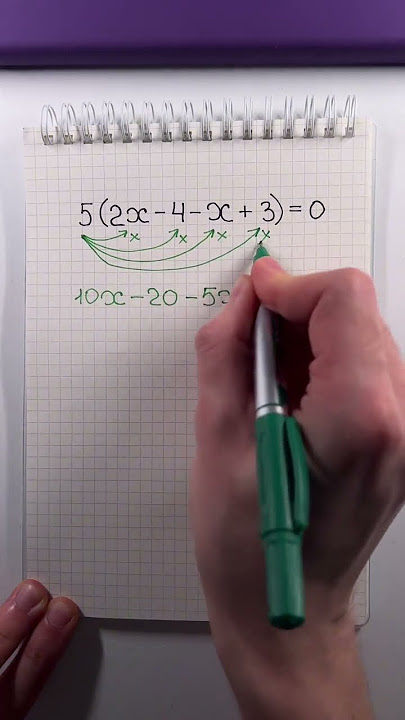 5(2x-4-x+3)=0
x x x x
10x-20-5x